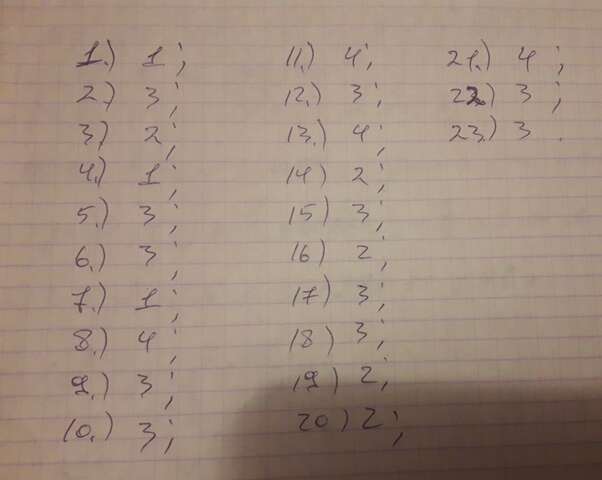 1.) 1;
2.) 3;
3.) 2;
4.) 1;
5.) 3;
6.) 3;
7.) 1;
8.) 4;
9.) 3;
10.) 3;
11.) 4;
12.) 3;
13.) 4;
14) 2;
15) 3;
16) 2;
17) 3;
18) 3;
19) 2;
20) 2;
21.) 4;
22.) 3;
23.) 3.